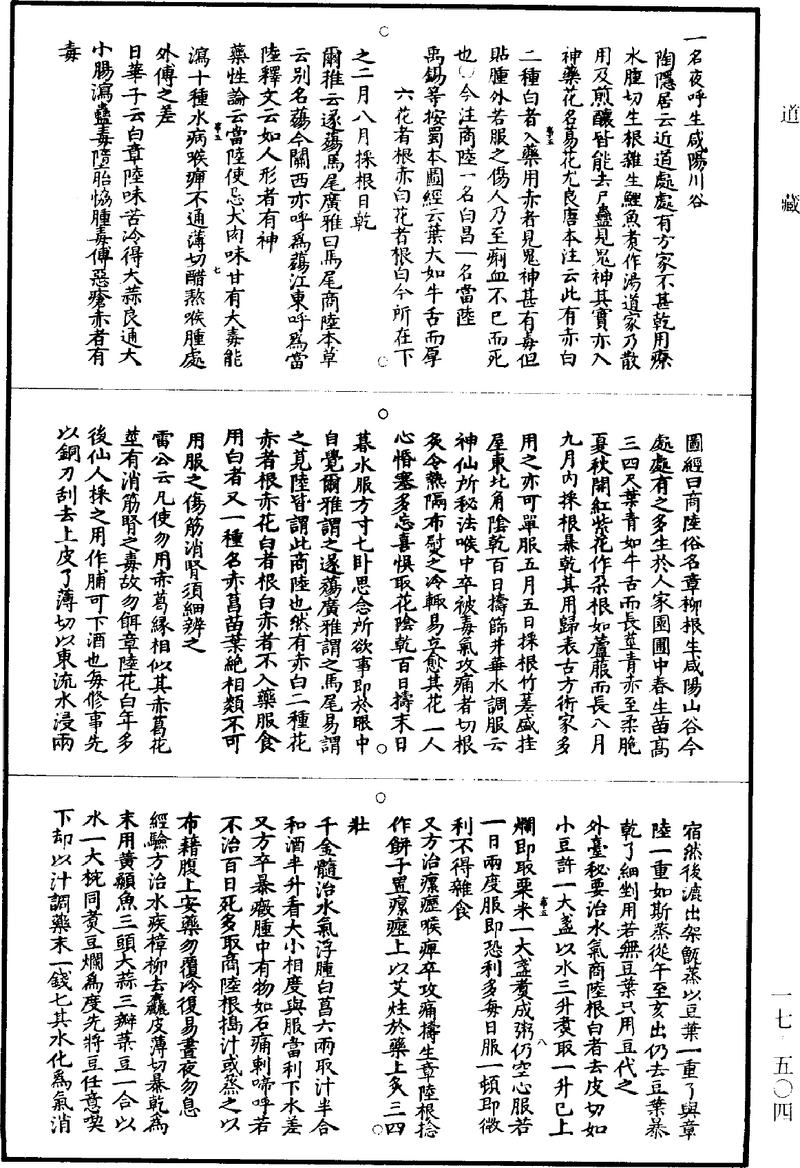 道藏
一名夜呼生咸陽川谷
陶隱居云近道處處有方家不甚乾用療
水腫切生根雜生鯉魚煮作湯道家乃散
用及煎釀皆能去尸蟲見鬼神其實亦入
神藥花名䔰花尤良唐本注云此有赤白
二種白者入藥用赤者見鬼神甚有毒但
貼腫外若服之傷人乃至痢血不已而死
也○今注商陸一名白昌一名當陸
禹錫等按蜀本圖經云葉大如牛舌而厚
六花者根赤白花者根白今所在下
之二月八月採根日乾
爾雅云蓫薚馬尾廣雅曰馬尾商陸本草
云别名薚今關西亦呼爲薚江東呼爲當
陸釋文云如人形者有神
藥性論云當陸使忌犬肉味甘有大毒能
瀉十種水病喉痹不通薄切醋熬喉腫處
外傅之差
日華子云白章陸味苦冷得大蒜良通大
小腸瀉蠱毒墮胎㷸腫毒傅惡瘡赤者有
毒
圖經曰商陸俗名章柳根生咸陽山谷今
處處有之多生於人家園圃中春生苗高
三四尺葉青如牛舌而長莖青赤至柔脆
夏秋開紅紫花作朶根如蘆菔而長八月
九月内採根暴乾其用歸表古方術家多
用之亦可單服五月五日採根竹篓盛挂
屋東北角陰乾百日擣篩井華水調服云
神仙所秘法喉中卒被毒氣攻痛者切根
炙令熱隔布熨之冷輒易立愈其花一人
心惛塞多忘喜悮取花陰乾百日擣末日
暮水服方寸七卧思念所欲事即於眼中
自覺爾雅謂之蓫薚廣雅謂之馬尾易謂
之莧陸皆謂此商陸也然有赤白二種花
赤者根赤花白者根白赤者不入藥服食
用白者又一種名赤葛苗葉絶相類不可
用服之傷筋消腎須細辨之
雷公云凡使勿用赤葛緣相似其赤葛花
莖有消筋腎之毒故勿餌章陸花白年多
後仙人採之用作脯可下酒也每修事先
以銅刀刮去上皮了薄切以東流水浸兩
宿然後漉出架甑蒸以豆葉一重了與章
陸一重如斯蒸從午至亥出仍去豆葉暴
乾了細剉用若無豆葉只用豆代之
外臺秘要治水氣商陸根白者去皮切如
小豆許一大盞以水三升煮取一升已上
爛即取粟米一大盞煑成粥仍空心服若
一日兩度服即恐利多每日服一頓即微
利不得雜食
又方治瘰癧喉痹卒攻痛擣生章陸根捻
作餅子置瘰癧上以艾炷於藥上灸三四
壯
千金髓治水氣浮腫白菖六兩取汁半合
和酒半升看大小相度與服當利下水差
又方卒暴癥腫中有物如石痛刺啼呼若
不治百日死多取商陸根搗汁或蒸之以
布藉腹上安藥勿覆冷復易晝夜勿息
經驗方治水疾樟柳去麤皮薄切暴乾爲
末用黃顙魚三頭大蒜三瓣菉豆一合以
水一大椀同煑豆爛爲度先將豆任意喫
下却以汁調藥末一錢七其水化爲氣消
一七·五〇四